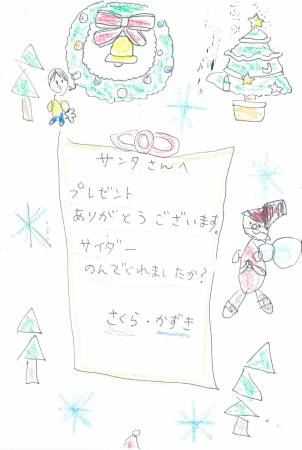 サンタさんへ
プレゼント
ありがとうございます。
サイダー
のんでくれましたか？
さくら・かずき